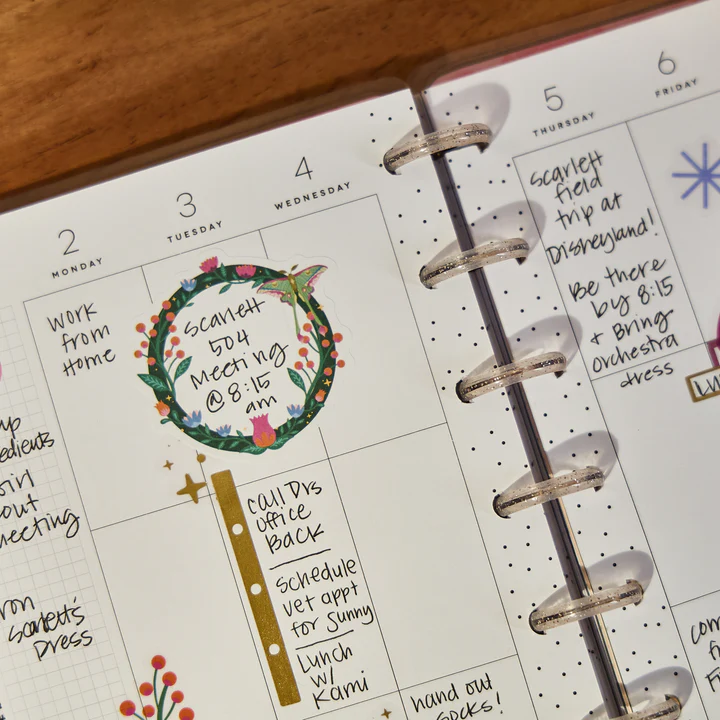 2
MONDAY
3
TUESDAY
4
WEDNESDAY
5
THURSDAY
6
FRIDAY
work
from
Home
Scarlett
504
Meeting
@ 8:15
am
call Drs
office
BACK
schedule
vet appt
for Sunny
Lunch
w/
Kami
hand out
socks!
Scarlett
field
trip at
Disneyland!
Be there
by 8:15
+ Bring
orchestra
dress
out
Scarlett's
Dress